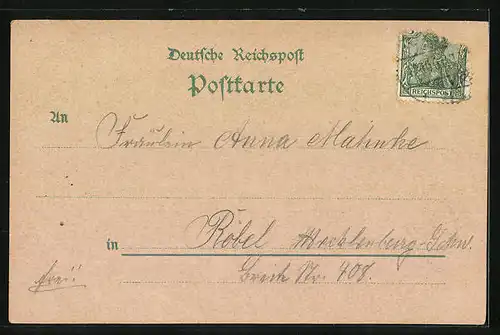 Deutsche Reichspost
Postkarte
REICHSPOST
An Fräulein Anna Mahnke
in Röbel Mecklenburg-Schw.
frei! Breite Nr. 408.